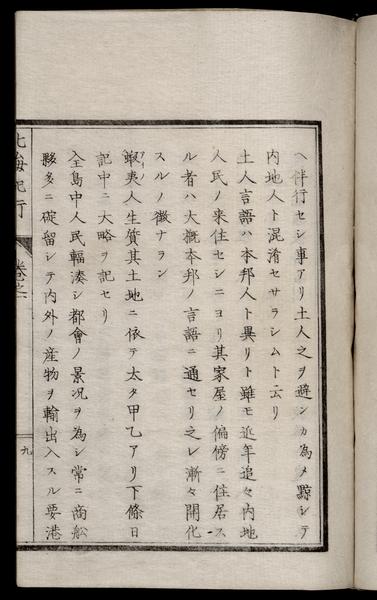 ヘ伴行セシ事アリ土人之ヲ避ンカ為メ黥シテ
内地人ト混淆セサラシムト云リ
土人言語ハ本邦人ト異リト雖モ近年追々内地
人民ノ来住セシニヨリ其家屋ノ偏傍ニ住居ス
ル者ハ大概本邦ノ言語ニ通セリ之レ漸々開化
スルノ徴ナラン
蝦夷人生質其土地ニ依テ太タ甲乙アリ下條日
記中ニ大略ヲ記セリ
全島中人民輻湊シ都會ノ景况ヲ為シ常ニ商舩
夥多ニ碇留シテ内外ノ産物ヲ輸出入スル要港
北海紀行
巻之一
九